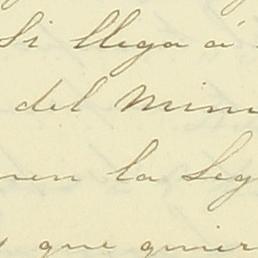 Si llega á
del Mini
nen la Seg
que quier